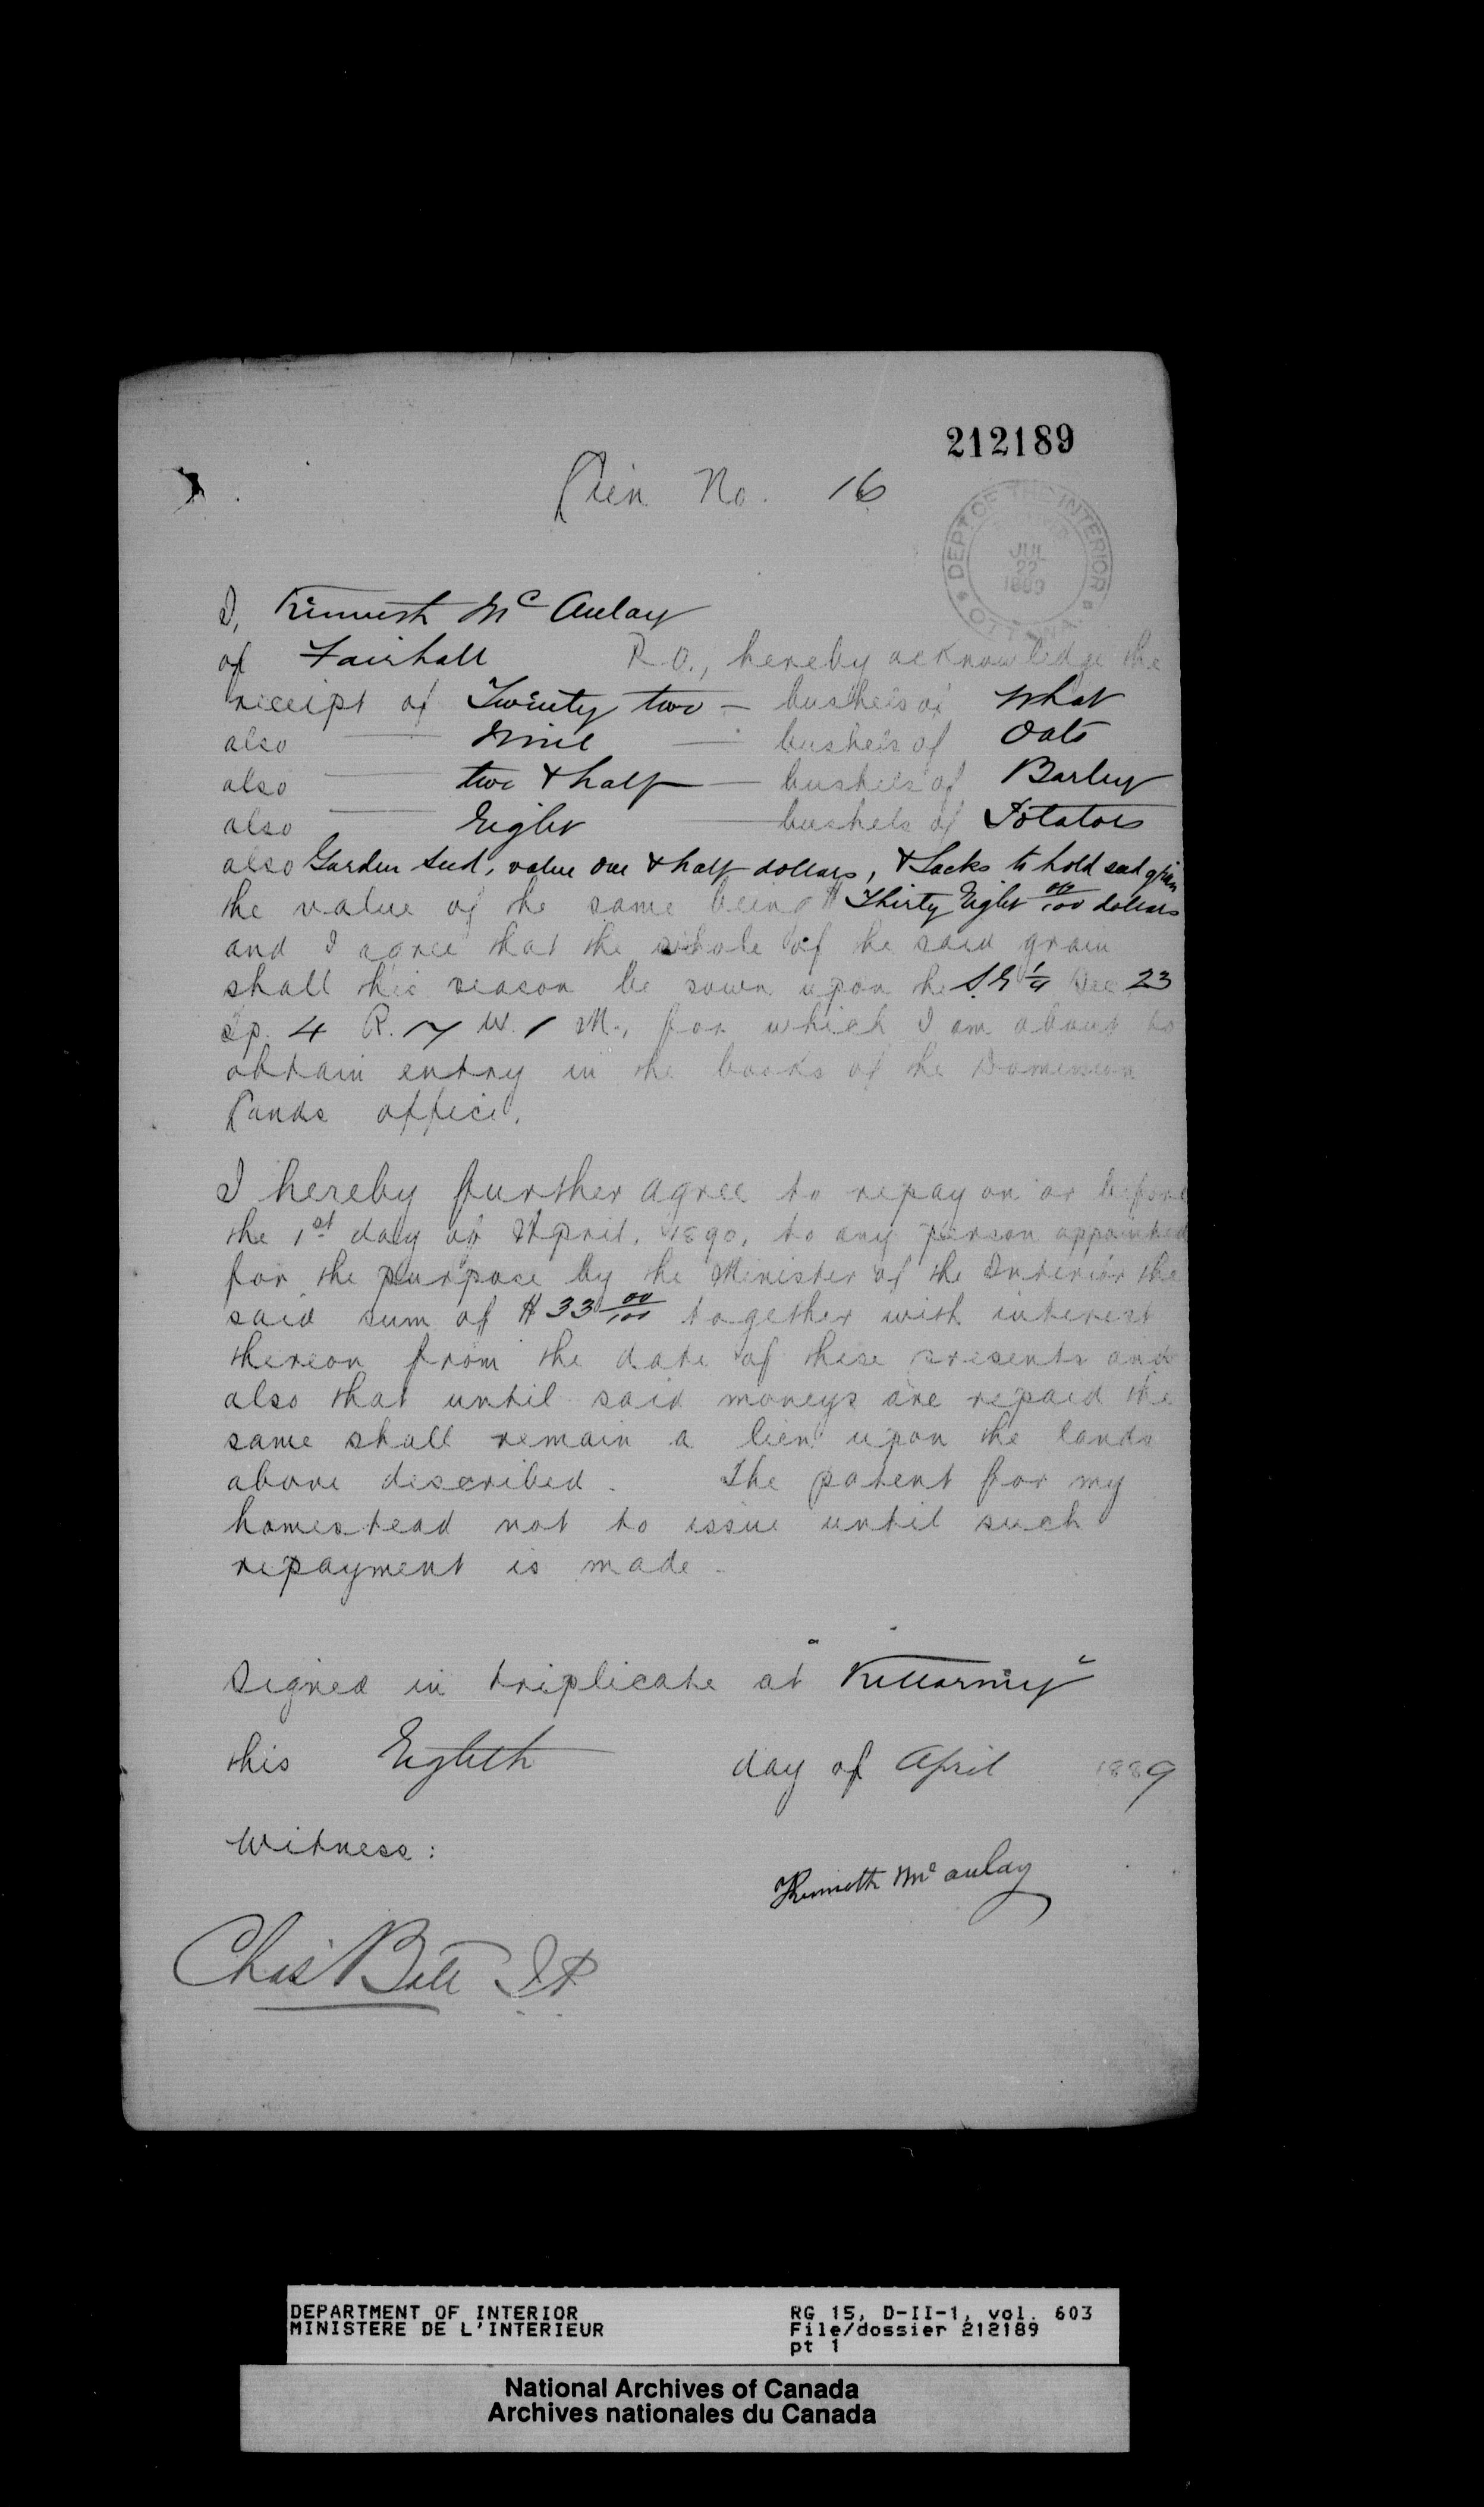 212189
Lien No. 16
DEPT OF THE INTERIOR
JUL
22
1889
OTTAWA
I, Kenneth Mc Aulay
of Fairhall P.O., hereby acknowledge the
receipt of Twenty two - bushels of Wheat
also Nine bushels of Oats
also two & half bushels of Barley
also Eight bushels of Potatoes
also Garden Seed, value one & half dollars, & Sacks to hold seed grain
the value of the same being Thirty Eight 00/100 dollars
and I agree that the whole of the said grain
shall this season be sown upon the S.E 1/4 Sec 23
Tp. 4 R. 17 W. 1 M., for which I am about to
obtain entry in the books of the Dominion
Lands office.
I hereby further agree to repay on or before
the 1st day of April, 1890, to any person appointed
for the purpose by the Minister of the Interior the
said sum of $ 33 00/100 together with interest
thereon from the date of these presents and
also that until said moneys are repaid the
same shall remain a lien upon the lands
above described. The patent for my
homestead not to issue until such
repayment is made.
Signed in triplicate at "Killarney"
this Eighth day of April 1889
Witness:
Kenneth Mc aulay
Chas Bate J.P.
DEPARTMENT OF INTERIOR
MINISTERE DE L'INTERIEUR
RG 15, D-II-1, vol. 603
File/dossier 212189
pt 1
National Archives of Canada
Archives nationales du Canada